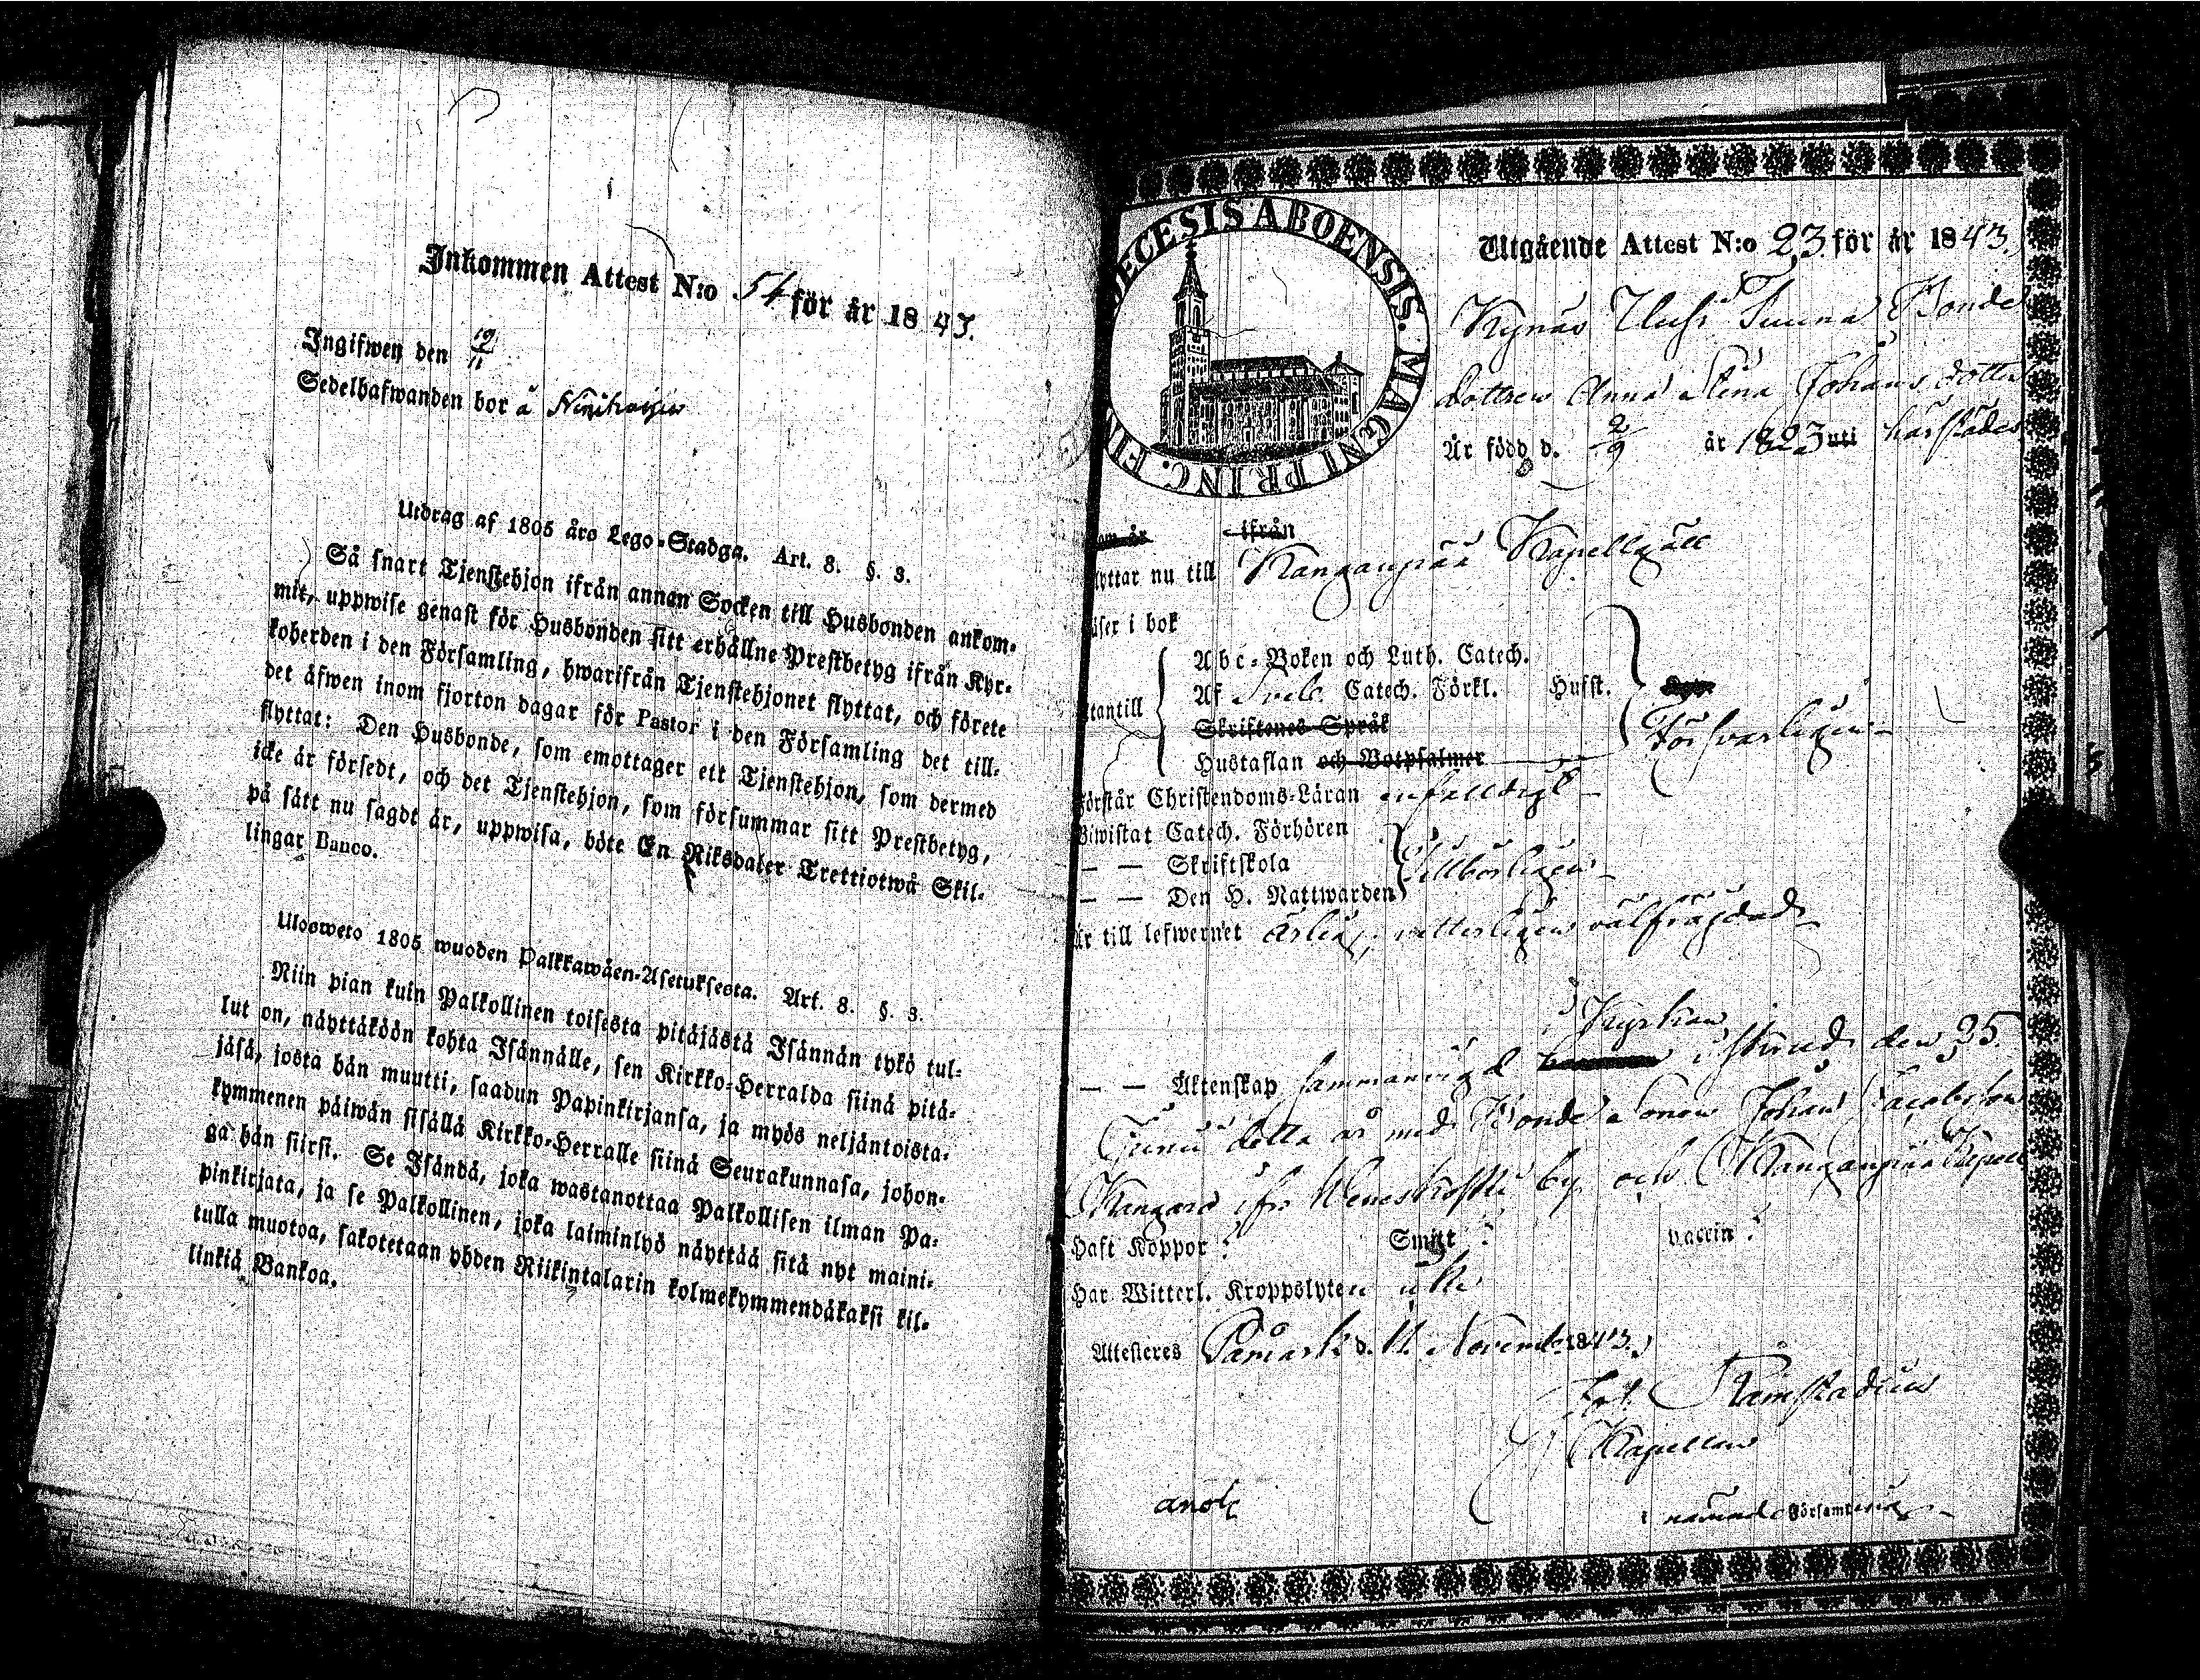 Inkommen Attest N:o 54 för år 1843.
Ingifwen den 12/11
Sedelhafwanden bor å
Utdrag af 1805 åro Lego-Stadga. Art. 8. §. 3.
Så snart Tjenstehjon ifrån annan Socken till Husbonden ankom-
mit, uppwise genast för Husbonden sitt erhållne Prestbetyg ifrån Kyr-
koherden i den Församling, hwarifrån Tjenstehjonet flyttat, och förete
det äfwen inom fjorton dagar för Pastor i den Församling det till-
flyttat: Den Husbonde, som emottager ett Tjenstehjon, som dermed
icke är försedt, och det Tjenstehjon, som försummar sitt Prestbetyg,
på sätt nu sagdt är, uppwisa, böte En Riksdaler Trettiotwå Skil-
lingar Banco.
Ulosweto 1805 wuoden Palkkawäen-Asetuksesta. Art. 8. §. 3.
Niin pian kuin Palkollinen toisesta pitäjästä Isännän tykö tul-
lut on, näyttäköön kohta Isännälle, sen Kirkko-Herralda siinä pitä-
jäsä, josta hän muutti, saadun Papinkirjansa, ja myös neljäntoista-
kymmenen päiwän sisällä Kirkko-Herralle siinä Seurakunnasa, johon-
ga hän siirsi. Se Isändä, joka wastanottaa Palkollisen ilman Pa-
pinkirjata, ja se Palkollinen, joka laiminlyö näyttää sitä nyt maini-
tulla muotoa, sakotetaan yhden Riikintalarin kolmekymmendäkaksi kil-
linkiä Bankoa.
DIECESIS ABOENSIS. MAGNI PRINC. FIN
Utgående Attest N:o 23 för år 1843.
Bonde
dottren Anna Stina Johans dotter
Är född d. 2/9 år 1823 uti härstädes
ifrån
flyttar nu till Kangasniemi Kapellgäll
Läser i bok
Abc-Boken och Luth. Catech.
Utantill Af Sveb. Catech. Förkl. Hufst.
Skriftenes Språk Försvarligen
Hustaflan och Botpsalmer
Förstår Christendoms-Läran enfaldigt
Biwistat Catech. Förhören
— — Skriftskola Tillbörligen
— — Den H. Nattwarden
Är till lefwernet ärlig, välfrägdad
Kyrkan
— — Äktenskap sammanvigd i stund den 25
Junii detta år med Bonde Sonen Johan Jacobsson
by och Kapell
Haft Koppor ? Smitt ? vaccin ?
Har Witterl. Kroppslyten icke
Attesteras Påmark d. 11 Novemb. 1843.
Kapellan
i nämnde Församling